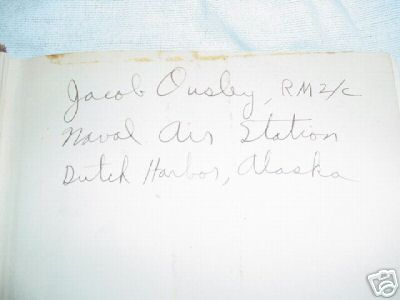 Jacob Ousley, RM2/c
Naval Air Station
Dutch Harbor, Alaska